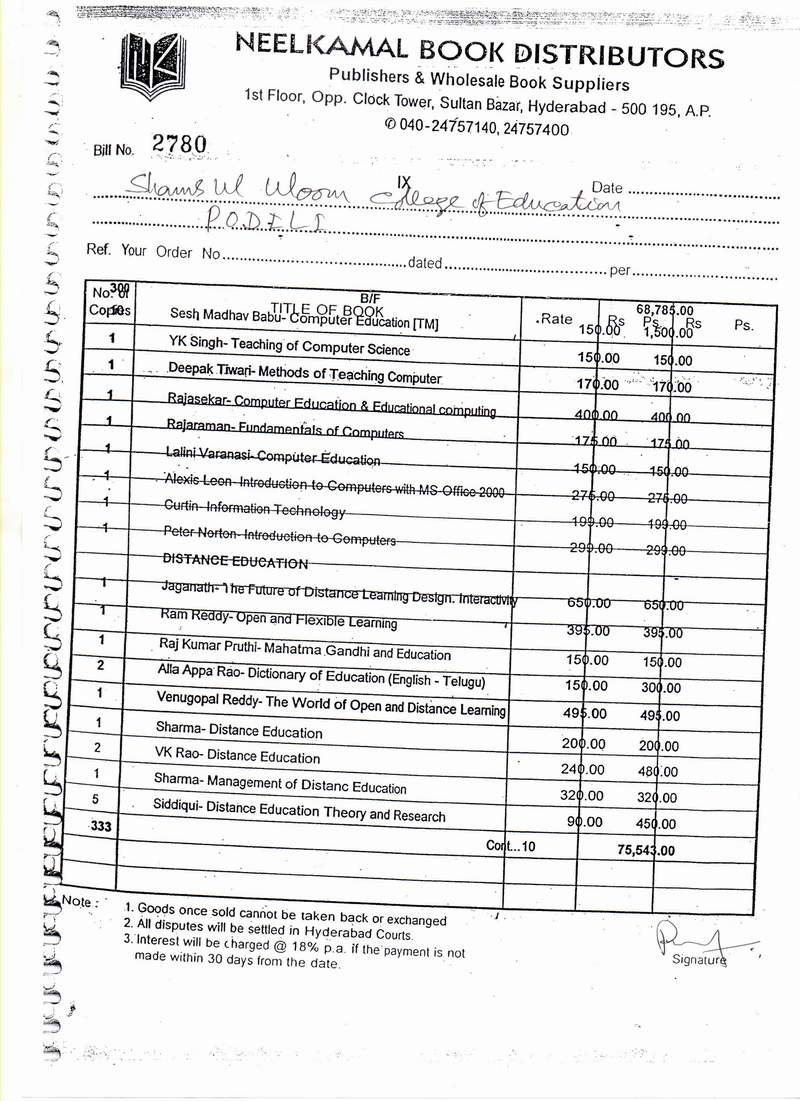 NEELKAMAL BOOK DISTRIBUTORS
Publishers & Wholesale Book Suppliers
1st Floor, Opp. Clock Tower, Sultan Bazar, Hyderabad - 500 195, A.P.
✆ 040-24757140, 24757400
Bill No. 2780
IX
Shams Ul Uloom College of Education Date
PODILI
Ref. Your Order No. dated per
No. of Copies TITLE OF BOOK Rate Rs Ps. Rs Ps.
300 B/F 68,785.00
10 Sesh Madhav Babu- Computer Education [TM] 150.00 1,500.00
1 YK Singh- Teaching of Computer Science 150.00 150.00
1 Deepak Tiwari- Methods of Teaching Computer 170.00 170.00
1 Rajasekar- Computer Education & Educational computing 400.00 400.00
1 Rajaraman- Fundamentals of Computers 175.00 175.00
1 Lalini Varanasi- Computer Education 150.00 150.00
1 Alexis Leon- Introduction to Computers with MS-Office 2000 275.00 275.00
1 Curtin- Information Technology 199.00 199.00
1 Peter Norton- Introduction to Computers 299.00 299.00
DISTANCE EDUCATION
1 Jaganath- The Future of Distance Learning Design. Interactivity 650.00 650.00
1 Ram Reddy- Open and Flexible Learning 395.00 395.00
1 Raj Kumar Pruthi- Mahatma Gandhi and Education 150.00 150.00
2 Alla Appa Rao- Dictionary of Education (English - Telugu) 150.00 300.00
1 Venugopal Reddy- The World of Open and Distance Learning 495.00 495.00
1 Sharma- Distance Education 200.00 200.00
2 VK Rao- Distance Education 240.00 480.00
1 Sharma- Management of Distanc Education 320.00 320.00
5 Siddiqui- Distance Education Theory and Research 90.00 450.00
333 Cont...10 75,543.00
Note : 1. Goods once sold cannot be taken back or exchanged
2. All disputes will be settled in Hyderabad Courts.
3. Interest will be charged @ 18% p.a. if the payment is not
made within 30 days from the date.
Signature